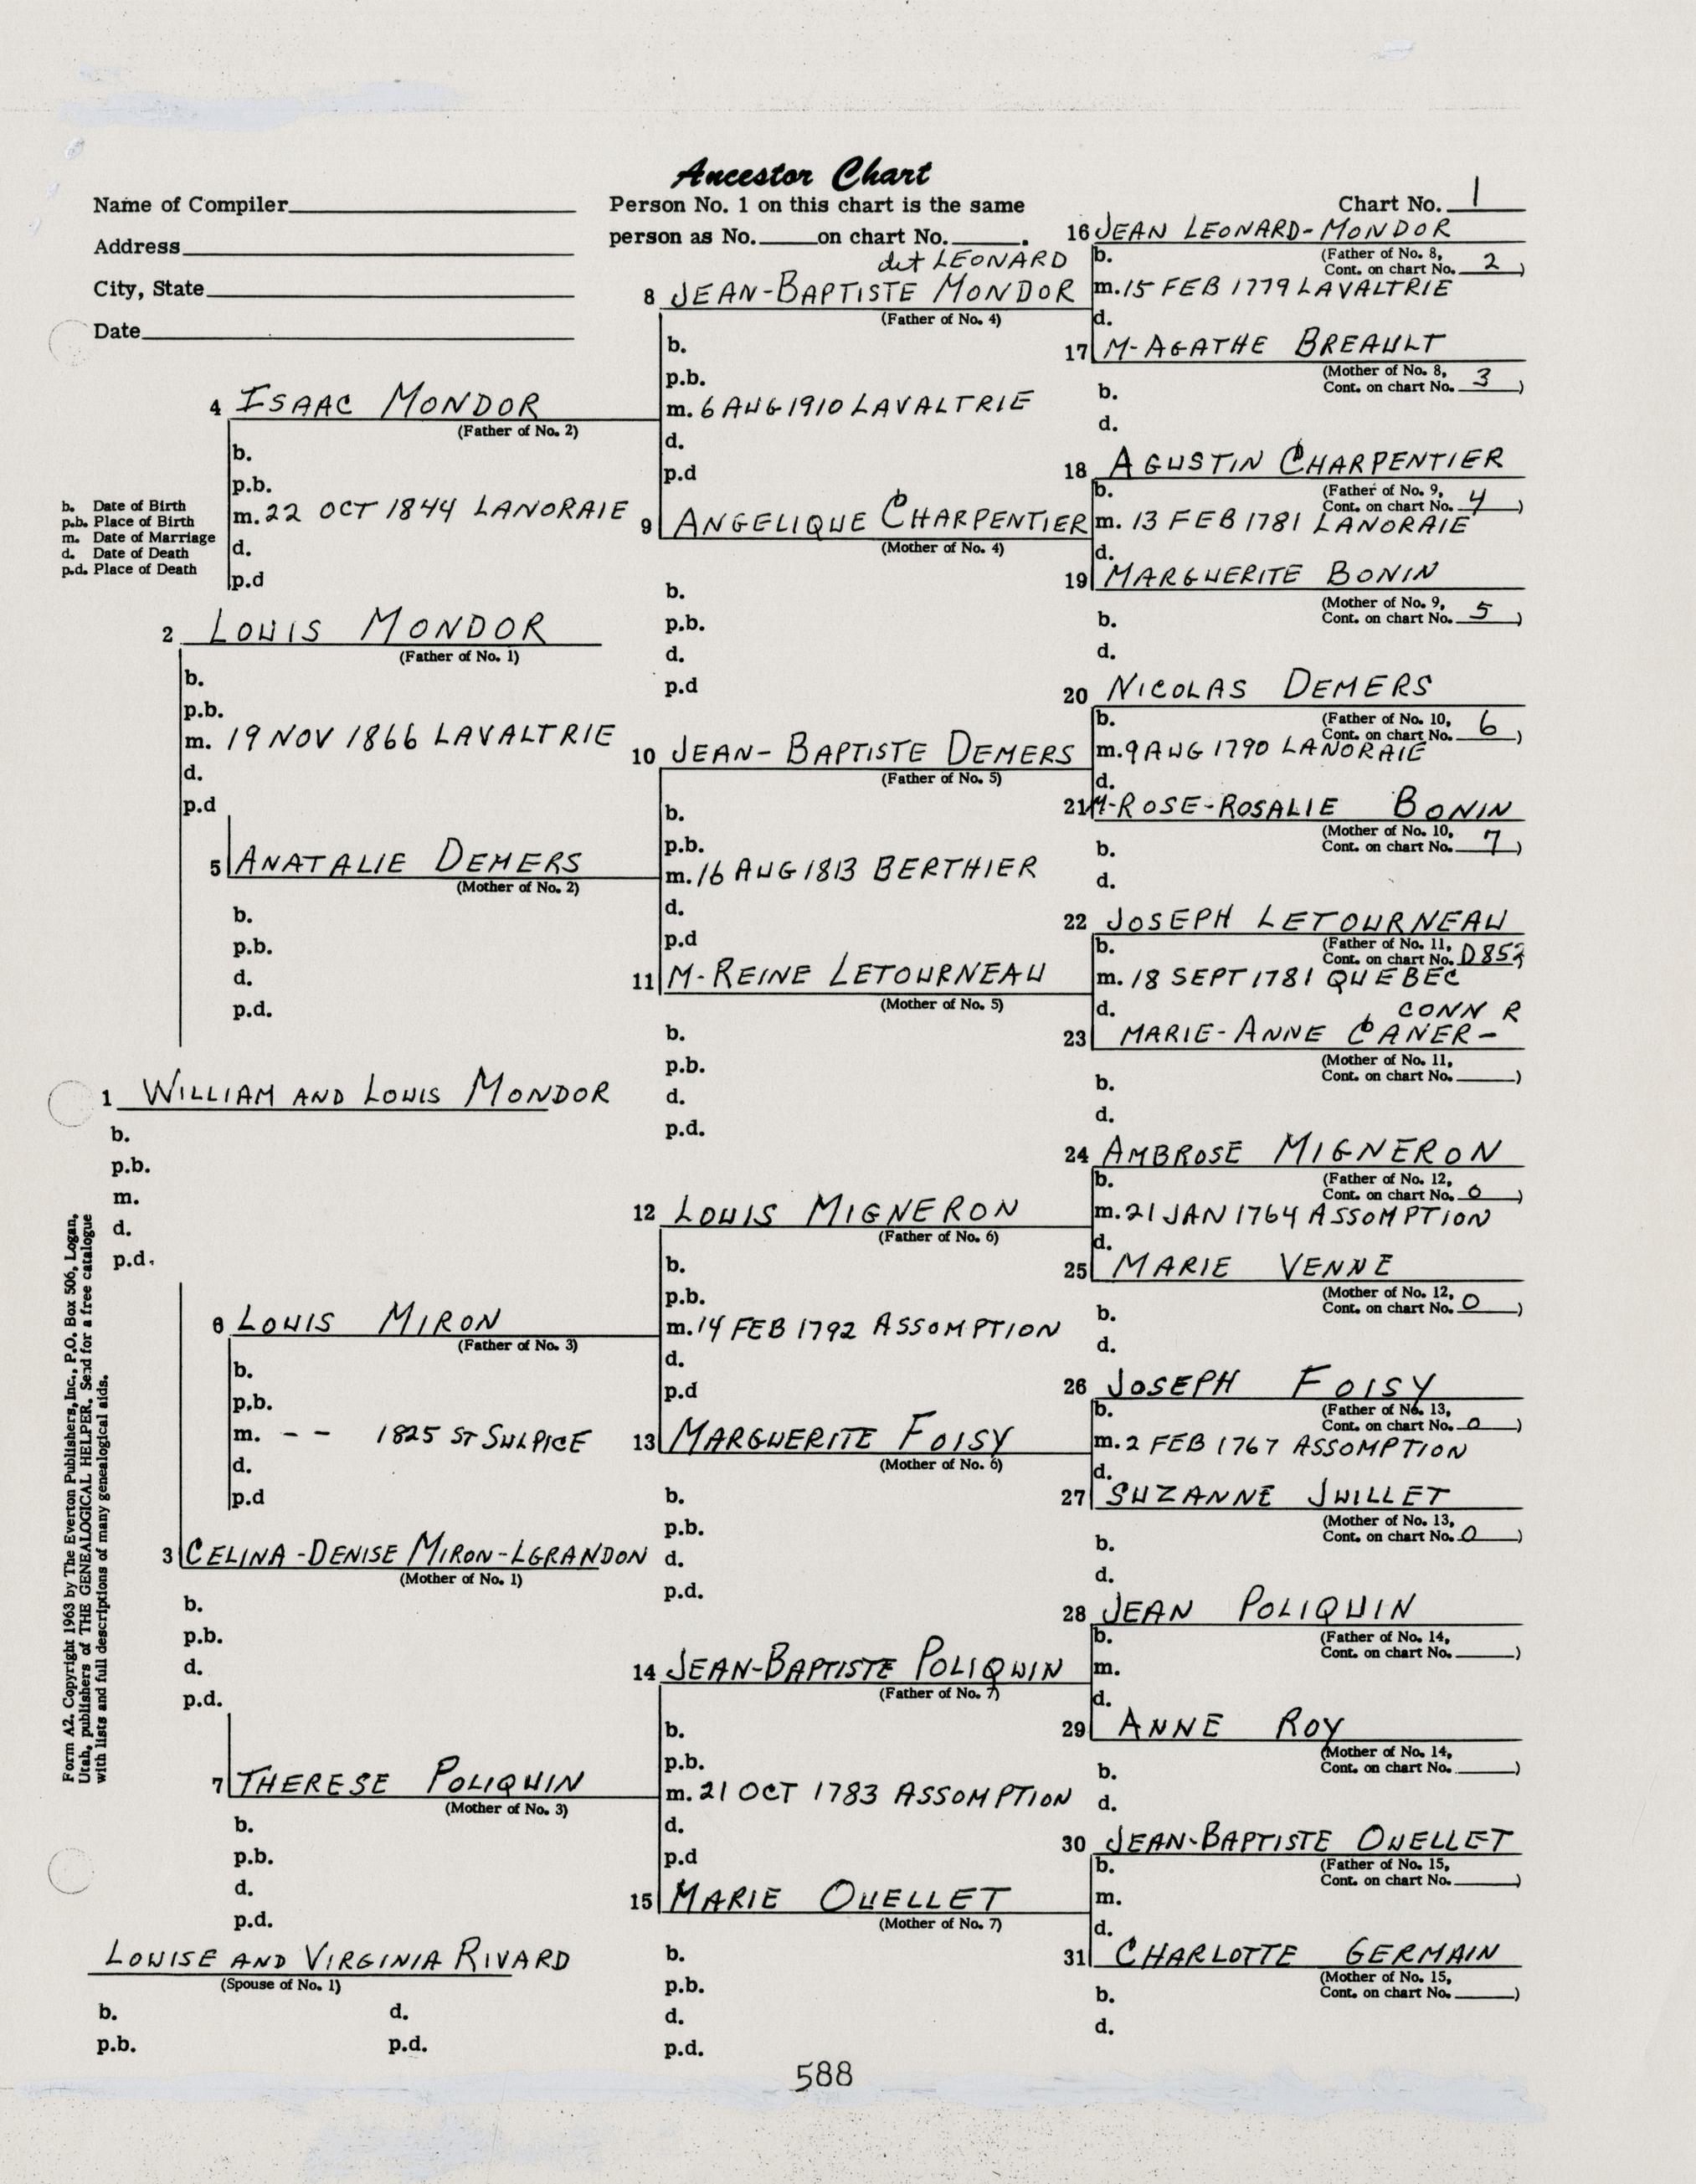 Ancestor Chart
Name of Compiler
Address
City, State
Date
Person No. 1 on this chart is the same
person as No. on chart No. .
Chart No. 1
b. Date of Birth
p.b. Place of Birth
m. Date of Marriage
d. Date of Death
p.d. Place of Death
4 ISAAC MONDOR
(Father of No. 2)
b.
p.b.
m. 22 OCT 1844 LANORAIE
d.
p.d
2 LOUIS MONDOR
(Father of No. 1)
b.
p.b.
m. 19 NOV 1866 LAVALTRIE
d.
p.d
5 ANATALIE DEMERS
(Mother of No. 2)
b.
p.b.
d.
p.d.
1 WILLIAM AND LOUIS MONDOR
b.
p.b.
m.
d.
p.d.
6 LOUIS MIRON
(Father of No. 3)
b.
p.b.
m. - - 1825 ST SULPICE
d.
p.d
3 CELINA-DENISE MIRON-LGRANDON
(Mother of No. 1)
b.
p.b.
d.
p.d.
7 THERESE POLIQUIN
(Mother of No. 3)
b.
p.b.
d.
p.d.
LOUISE AND VIRGINIA RIVARD
(Spouse of No. 1)
b. d.
p.b. p.d.
dit LEONARD
8 JEAN-BAPTISTE MONDOR
(Father of No. 4)
b.
p.b.
m. 6 AUG 1910 LAVALTRIE
d.
p.d
9 ANGELIQUE CHARPENTIER
(Mother of No. 4)
b.
p.b.
d.
p.d
10 JEAN-BAPTISTE DEMERS
(Father of No. 5)
b.
p.b.
m. 16 AUG 1813 BERTHIER
d.
p.d
11 M-REINE LETOURNEAU
(Mother of No. 5)
b.
p.b.
d.
p.d.
12 LOUIS MIGNERON
(Father of No. 6)
b.
p.b.
m. 14 FEB 1792 ASSOMPTION
d.
p.d
13 MARGUERITE FOISY
(Mother of No. 6)
b.
p.b.
d.
p.d.
14 JEAN-BAPTISTE POLIQUIN
(Father of No. 7)
b.
p.b.
m. 21 OCT 1783 ASSOMPTION
d.
p.d
15 MARIE OUELLET
(Mother of No. 7)
b.
p.b.
d.
p.d.
16 JEAN LEONARD-MONDOR
b. (Father of No. 8,
Cont. on chart No. 2)
m. 15 FEB 1779 LAVALTRIE
d.
17 M-AGATHE BREAULT
(Mother of No. 8,
b. Cont. on chart No. 3)
d.
18 AGUSTIN CHARPENTIER
b. (Father of No. 9,
Cont. on chart No. 4)
m. 13 FEB 1781 LANORAIE
d.
19 MARGUERITE BONIN
(Mother of No. 9,
b. Cont. on chart No. 5)
d.
20 NICOLAS DEMERS
b. (Father of No. 10,
Cont. on chart No. 6)
m. 9 AUG 1790 LANORAIE
d.
21 M-ROSE-ROSALIE BONIN
(Mother of No. 10,
b. Cont. on chart No. 7)
d.
22 JOSEPH LETOURNEAU
b. (Father of No. 11,
Cont. on chart No. D852)
m. 18 SEPT 1781 QUEBEC
d. CONN R
23 MARIE-ANNE CANER-
(Mother of No. 11,
b. Cont. on chart No. )
d.
24 AMBROSE MIGNERON
b. (Father of No. 12,
Cont. on chart No. 0)
m. 21 JAN 1764 ASSOMPTION
d.
25 MARIE VENNE
(Mother of No. 12,
b. Cont. on chart No. 0)
d.
26 JOSEPH FOISY
b. (Father of No. 13,
Cont. on chart No. 0)
m. 2 FEB 1767 ASSOMPTION
d.
27 SUZANNE JUILLET
(Mother of No. 13,
b. Cont. on chart No. 0)
d.
28 JEAN POLIQUIN
b. (Father of No. 14,
Cont. on chart No. )
m.
d.
29 ANNE ROY
(Mother of No. 14,
b. Cont. on chart No. )
d.
30 JEAN-BAPTISTE OUELLET
b. (Father of No. 15,
Cont. on chart No. )
m.
d.
31 CHARLOTTE GERMAIN
(Mother of No. 15,
b. Cont. on chart No. )
d.
Form A2. Copyright 1963 by The Everton Publishers, Inc., P.O. Box 506, Logan,
Utah, publishers of THE GENEALOGICAL HELPER. Send for a free catalogue
with lists and full descriptions of many genealogical aids.
588